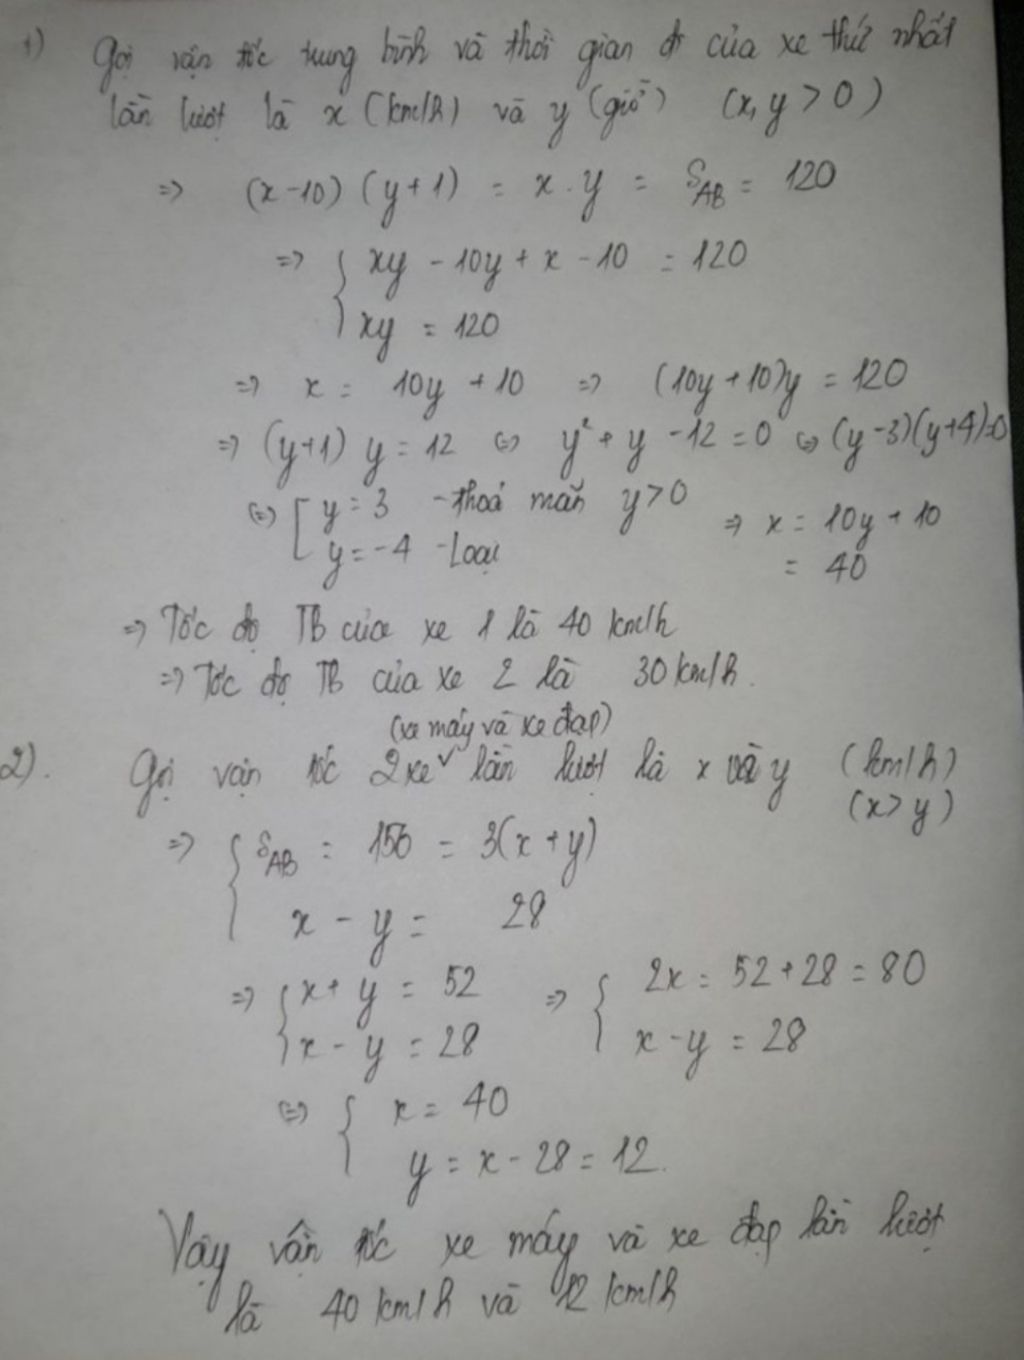 1) Gọi vận tốc trung bình và thời gian đi của xe thứ nhất
lần lượt là x (km/h) và y (giờ) (x, y > 0)
=> (x-10) (y+1) = x . y = S_AB = 120
=> { xy - 10y + x - 10 = 120
xy = 120
=> x = 10y + 10 => (10y+10)y = 120
=> (y+1) y = 12 <=> y² + y - 12 = 0 <=> (y-3)(y+4)=0
<=> [ y = 3 - thoả mãn y>0 => x = 10y + 10
y = -4 - Loại = 40
=> Tốc độ TB của xe 1 là 40 km/h
=> Tốc độ TB của xe 2 là 30 km/h.
(xe máy và xe đạp)
2). Gọi vận tốc 2 xe ˅ lần lượt là x và y (km/h)
(x > y)
=> { S_AB = 156 = 3(x + y)
x - y = 28
=> { x + y = 52 => { 2x = 52 + 28 = 80
x - y = 28 x - y = 28
<=> { x = 40
y = x - 28 = 12.
Vậy vận tốc xe máy và xe đạp lần lượt
là 40 km/h và 12 km/h